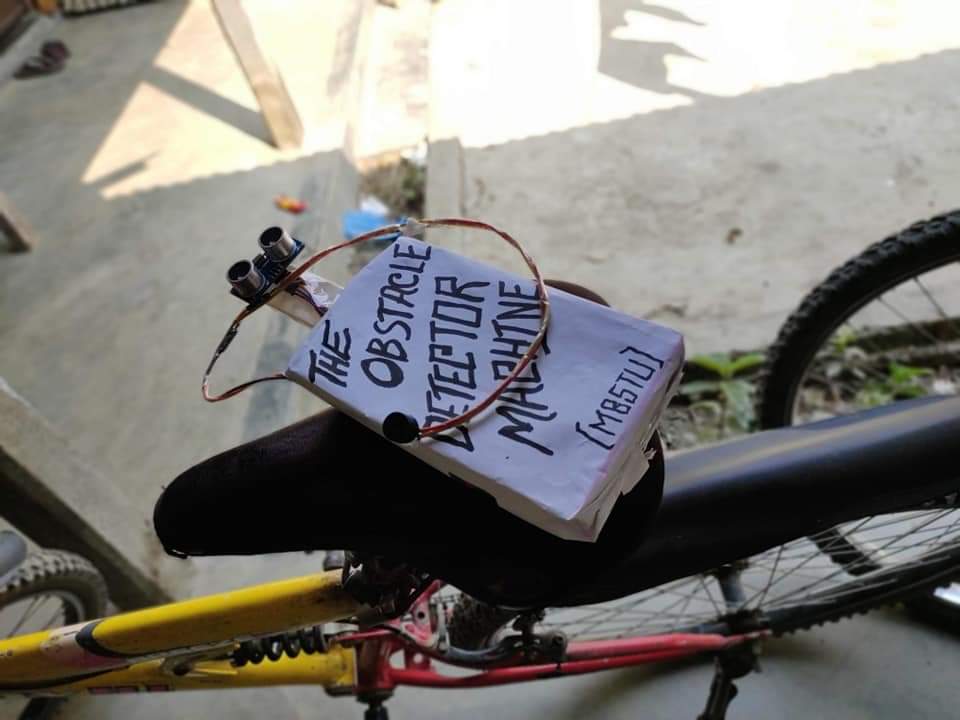 THE
OBSTACLE
DETECTOR
MACHINE
(MBSTU)